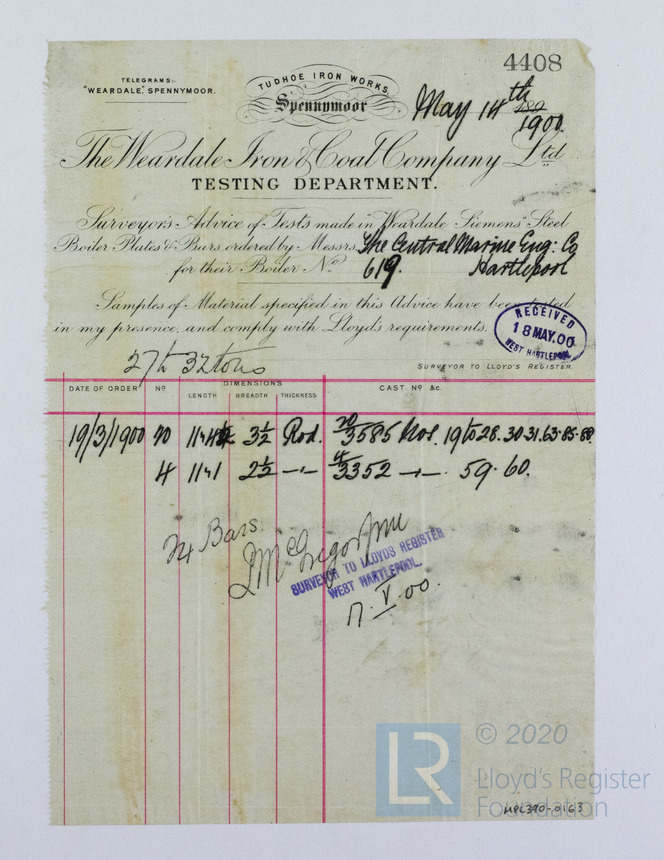 4408
TELEGRAMS:
"WEARDALE," SPENNYMOOR.
TUDHOE IRON WORKS,
Spennymoor
May 14th
189
1900.
The Weardale Iron & Coal Company Ltd
TESTING DEPARTMENT.
Surveyor's Advice of Tests made in "Weardale Siemens" Steel
Boiler Plates & Bars ordered by Messrs The Central Marine Eng: Co
for their Boiler No 619. Hartlepool
Samples of Material specified in this Advice have been tested
in my presence, and comply with Lloyd's requirements.
RECEIVED
18 MAY.00
WEST HARTLEPOOL
27 to 32 tons
SURVEYOR TO LLOYD'S REGISTER.
DATE OF ORDER No DIMENSIONS CAST No &c.
LENGTH BREADTH THICKNESS
19/3/1900 20 3½ Rod. 20/3585 Nos. 19 to 28. 30-31. 63-85-88.
4 11-1 2½ -"- 4/3352 -"- 59-60.
24 Bars.
J McGregor
SURVEYOR TO LLOYDS REGISTER
WEST HARTLEPOOL.
17.V.00.
LR
© 2020
Lloyd's Register
Foundation
HPL390-0163